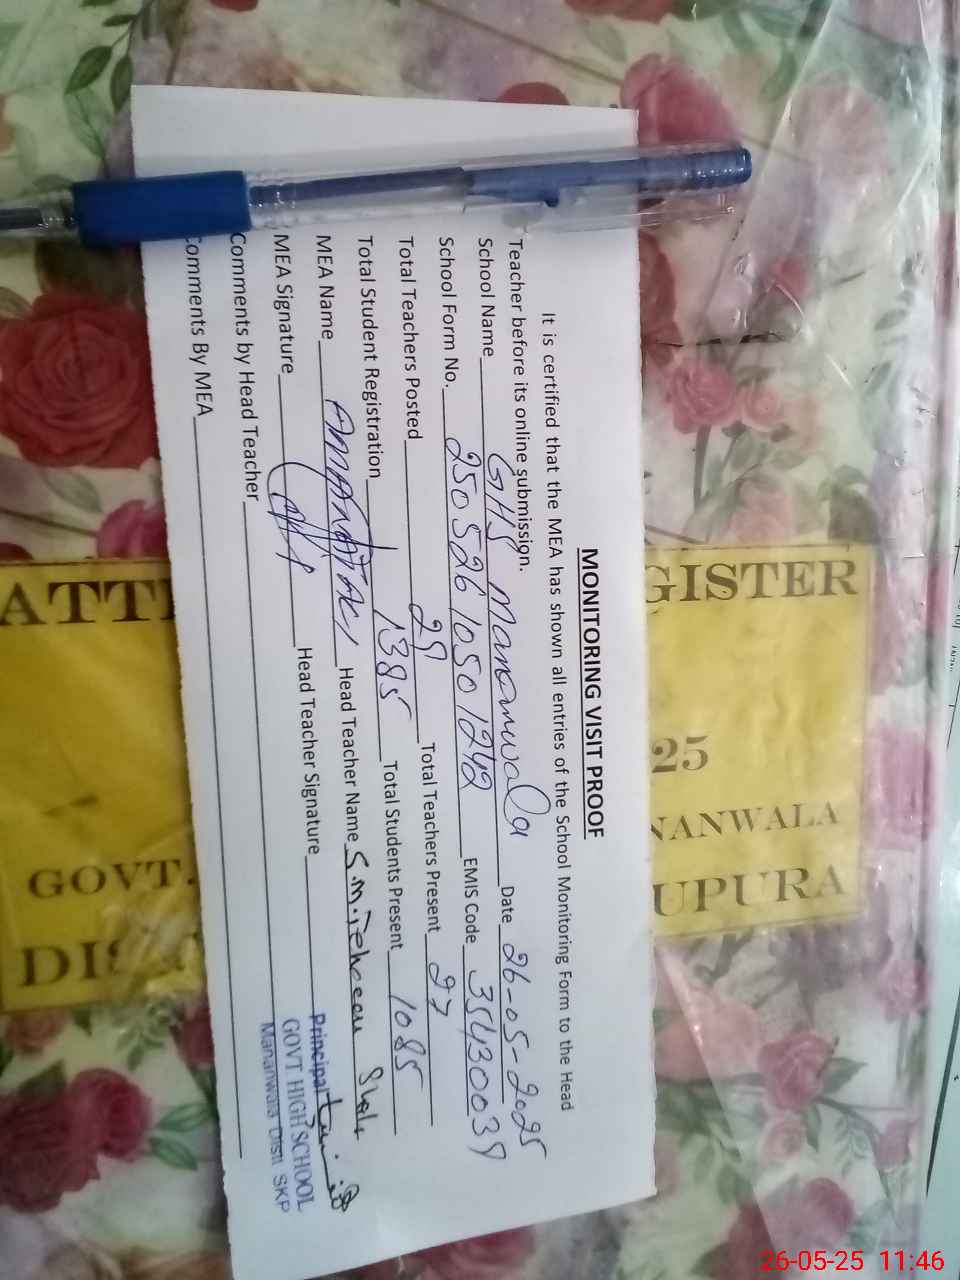 MONITORING VISIT PROOF
It is certified that the MEA has shown all entries of the School Monitoring Form to the Head
Teacher before its online submission.
School Name GHS Mananwala Date 26-05-2025
School Form No. 25052610501242 EMIS Code 35430039
Total Teachers Posted 29 Total Teachers Present 27
Total Student Registration 1385 Total Students Present 1085
MEA Name Head Teacher Name S.M. Shah
MEA Signature Head Teacher Signature
Comments by Head Teacher
Comments By MEA
Principal
GOVT HIGH SCHOOL
Mananwala Distt SKP
ATT GISTER
25
GOVT. NANWALA
DIS UPURA
26-05-25 11:46